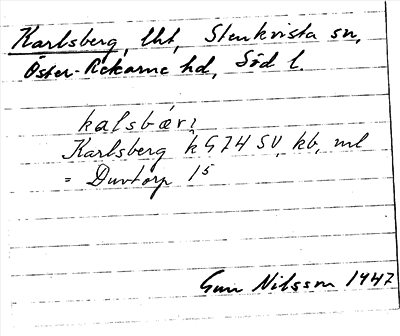 Karlsberg, lht, Stenkvista sn,
Öster-Rekarne hd, Söd l.
kalsbærj
Karlsberg k G74 SV, kb, ml
= Duvtorp 15
Gun Nilsson 1947